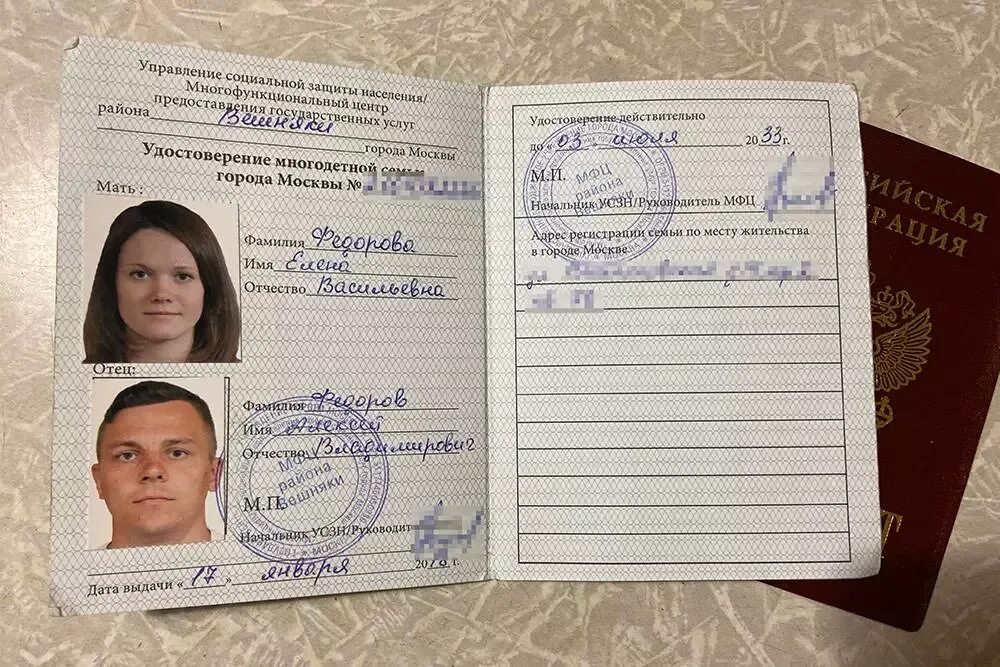 Управление социальной защиты населения/
Многофункциональный центр
предоставления государственных услуг
района Вешняки
города Москвы
Удостоверение многодетной семьи
города Москвы №
Мать :
Фамилия Федорова
Имя Елена
Отчество Васильевна
Отец:
Фамилия Федоров
Имя Алексей
Отчество Владимирович
МФЦ
района
Вешняки
М.П.
Начальник УСЗН/Руководит
Дата выдачи « 17 » января 20 г.
Удостоверение действительно
до « 03 » июля 2033г.
МФЦ
района
Вешняки
М.П.
Начальник УСЗН/Руководитель МФЦ
Адрес регистрации семьи по месту жительства
в городе Москве
ул.
ИЙСКАЯ
РАЦИЯ
Т